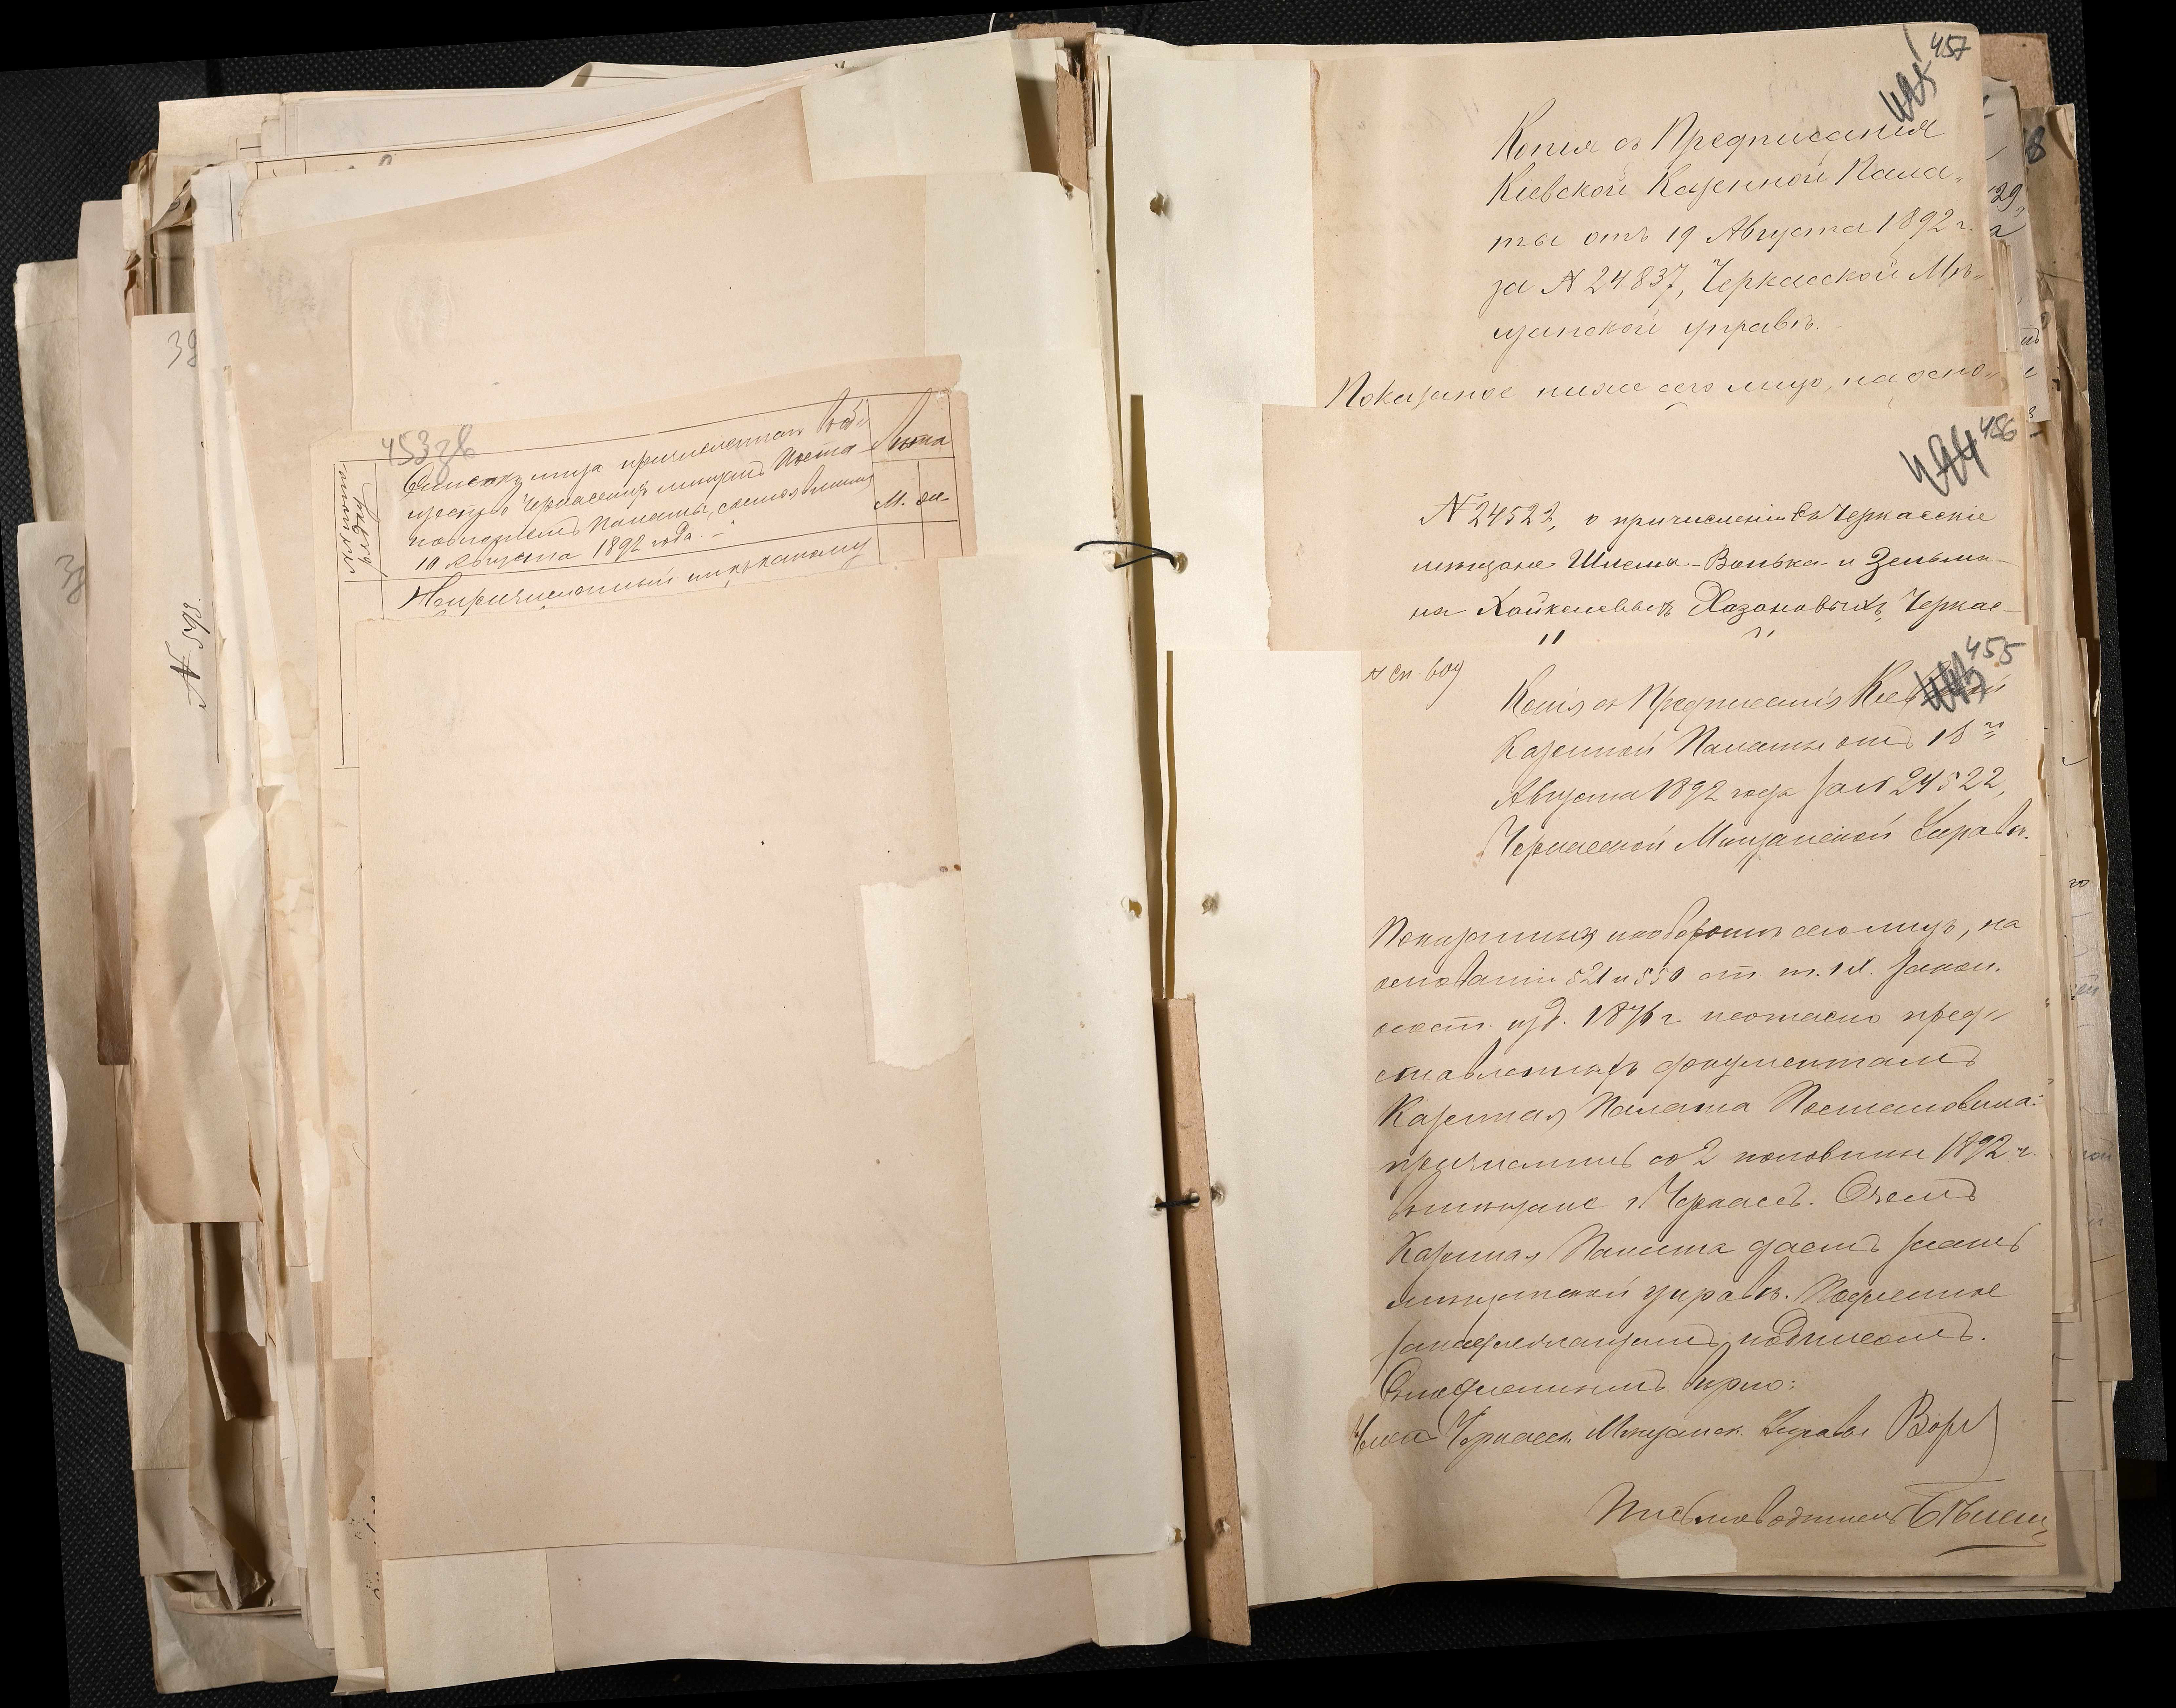 453 зв
Списокъ лица причисленнаго въ об-
щество Черкасскихъ мѣщанъ Поста-
новленіемъ Палаты, состоявшимся
10 Августа 1892 года.
Лѣта
М. Ж
Непричисленный ни къ какому
38
38
N 595
457
Копія съ Предписанія
Кіевской Казенной Пала-
ты отъ 19 Августа 1892 г.
за N 24837, Черкасской Мѣ-
щанской управѣ.
Показаное ниже сего лицо, на осно-
456
N 24523, о причисленіи въ Черкасскіе
мѣщане Шлема-Волька и Зельма-
на Хайкелевыхъ Хазановыхъ, Черкас-
455
N сп. 609
Копія съ Предписанія Кіевской
Казенной Палаты отъ 18 го
Августа 1892 года за N 24522,
Черкасской Мѣщанской Управѣ.
Показанныхъ на оборотѣ сего лицъ, на
основаніи 521 и 550 ст. т. IX. закон.
сост. изд. 1876 г. и согласно пред-
ставленнымъ документамъ
Казенная Палата Постановила:
причислить со 2 половины 1892 г.
въ мѣщане г. Черкасъ. О чемъ
Казенная Палата даетъ знать
мѣщанской управѣ. Подлинное
за надлежащимъ подписомъ.
Съ подлиннымъ вѣрно:
Членъ Черкасск. Мѣщанск. Управы
Письмоводитель